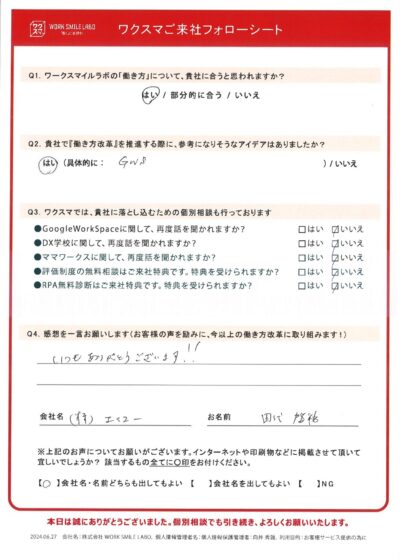 ワクスマ WORK SMILE LABO
ワクスマご来社フォローシート
Q1. ワークスマイルラボの「働き方」について、貴社に合うと思われますか?
はい / 部分的に合う / いいえ
Q2. 貴社で『働き方改革』を推進する際に、参考になりそうなアイデアはありましたか?
はい (具体的に: ) / いいえ
Q3. ワクスマでは、貴社に落とし込むための個別相談も行っております
●GoogleWorkSpaceに関して、再度話を聞かれますか? □はい ☑いいえ
●DX学校に関して、再度話を聞かれますか? □はい ☑いいえ
●ママワークスに関して、再度話を聞かれますか? □はい ☑いいえ
●評価制度の無料相談はご来社特典です。特典を受けられますか? □はい ☑いいえ
●RPA無料診断はご来社特典です。特典を受けられますか? □はい ☑いいえ
Q4. 感想を一言お願いします(お客様の声を励みに、今以上の働き方改革に取り組みます!)
いつもありがとうございます!!
会社名 (株) エイコー お名前 田代
※上記のお声についてお願いがございます。インターネットや印刷物などに掲載させて頂いて
宜しいでしょうか? 該当するもの全てに〇印をお付けください。
【〇】会社名・名前どちらも出してもよい 【 】会社名を出してもよい 【 】NG
本日は誠にありがとうございました。個別相談でも引き続き、よろしくお願いいたします。
2024.06.27 会社名:株式会社 WORK SMILE LABO、個人情報管理者名:個人情報保護管理者:向井 秀哉、利用目的:お客様サービス提供の為に